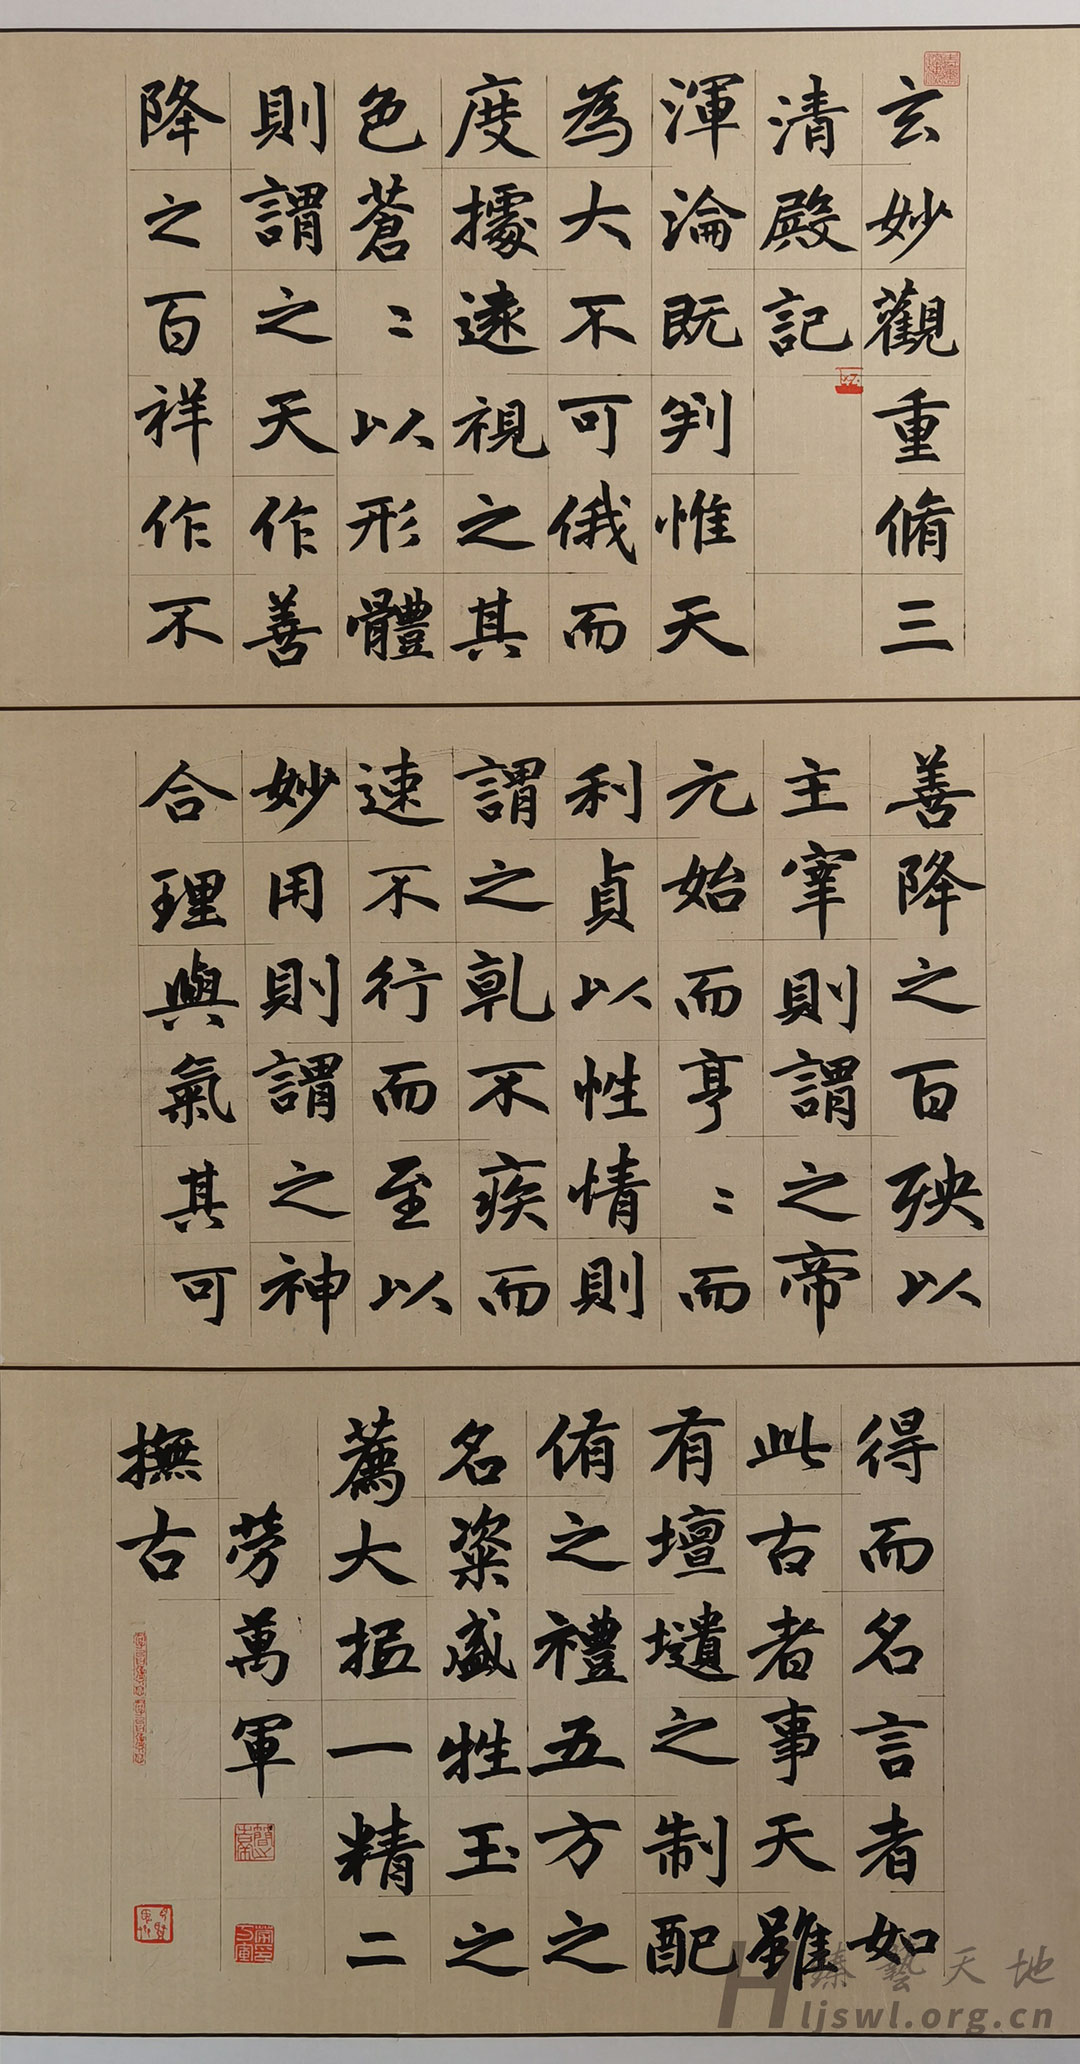 玄妙觀重脩三
清殿記
渾淪既判惟天
為大不可俄而
度據遠視之其
色蒼〻以形體
則謂之天作善
降之百祥作不
善降之百殃以
主宰則謂之帝
元始而亨〻而
利貞以性情則
謂之乹不疾而
速不行而至以
妙用則謂之神
合理與氣其可
得而名言者如
此古者事天雖
有壇壝之制配
侑之禮五方之
名粢盛牲玉之
薦大抵一精二
勞萬軍
撫古
臻藝天地
Hljswl.org.cn